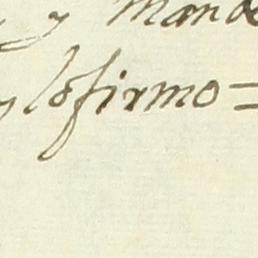 y Mando
y lo firmo =